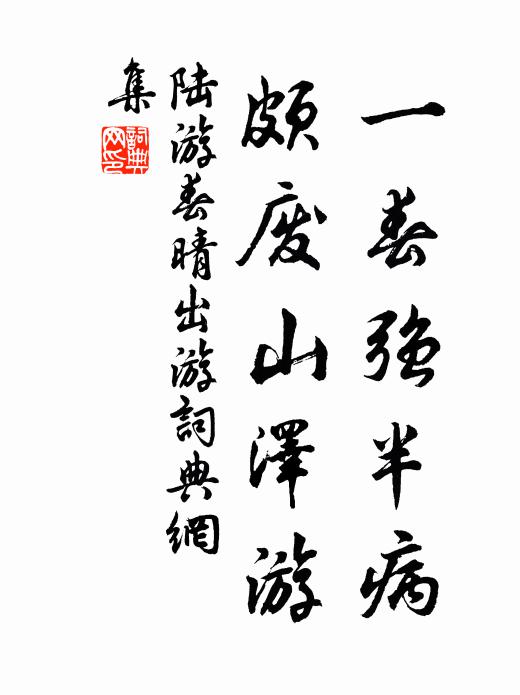 一春強半病
頗废山澤游
陆游春晴出游詞典網
集
詞典
网印